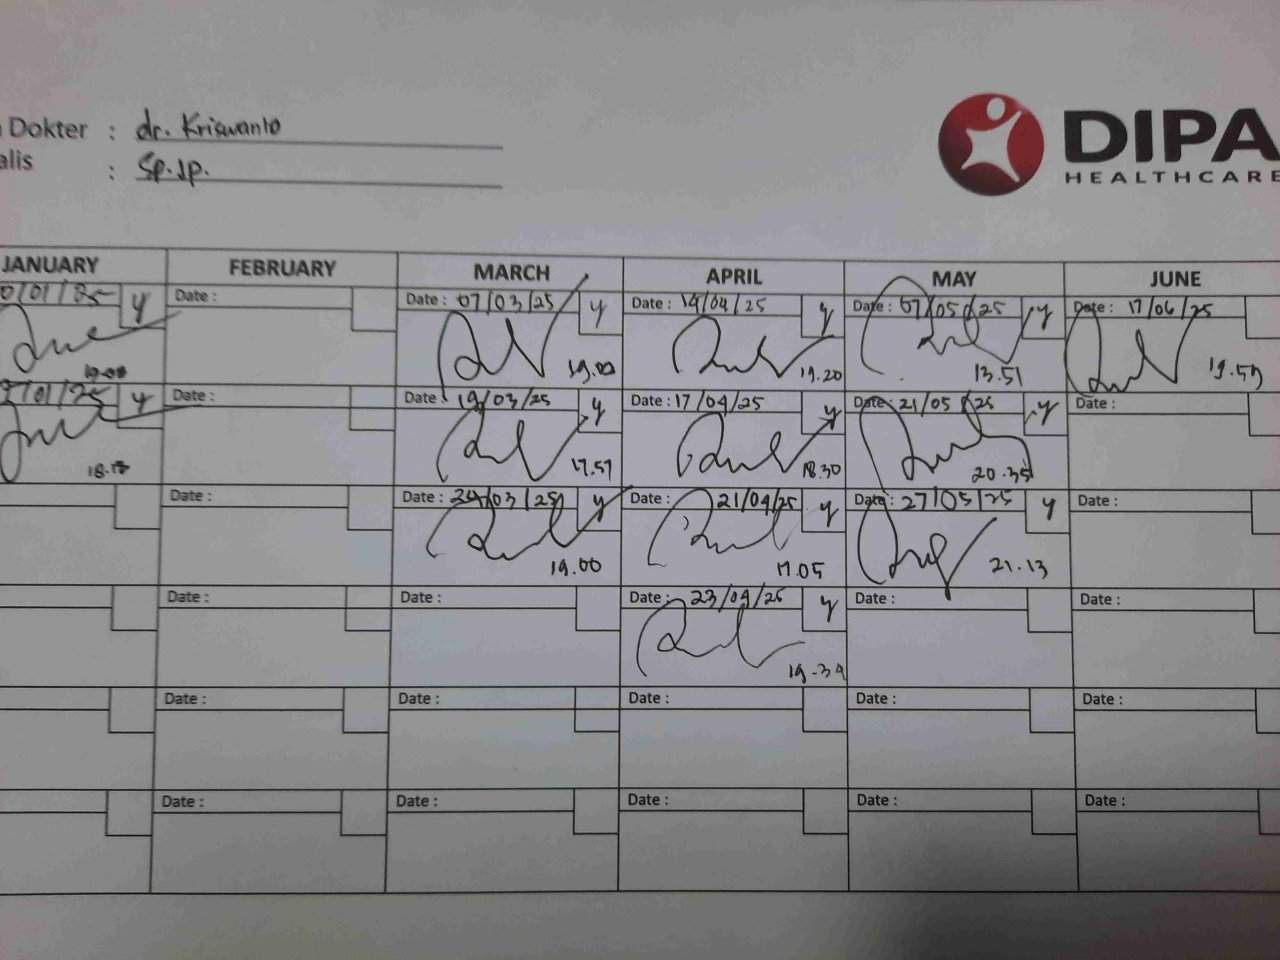 Dokter : dr. Kriswanto
alis : Sp.Jp.
DIPA
HEALTHCARE
JANUARY FEBRUARY MARCH APRIL MAY JUNE
0/01/25 y Date : Date : 07/03/25 y Date : 14/04/25 y Date : 07/05/25 y Date : 17/06/25
19.00 19.20 13.51
/01/25 y Date : 19/03/25 y Date : 17/04/25 y Date : 21/05/25 y Date :
17.57 18.30 20.35
Date : Date : 24/03/25 y Date : 21/04/25 y Date : 27/05/25 y Date :
19.00 17.05 21.13
Date : Date : Date : 23/04/25 y Date : Date :
19.39
Date : Date : Date : Date :
Date : Date : Date : Date : Date :